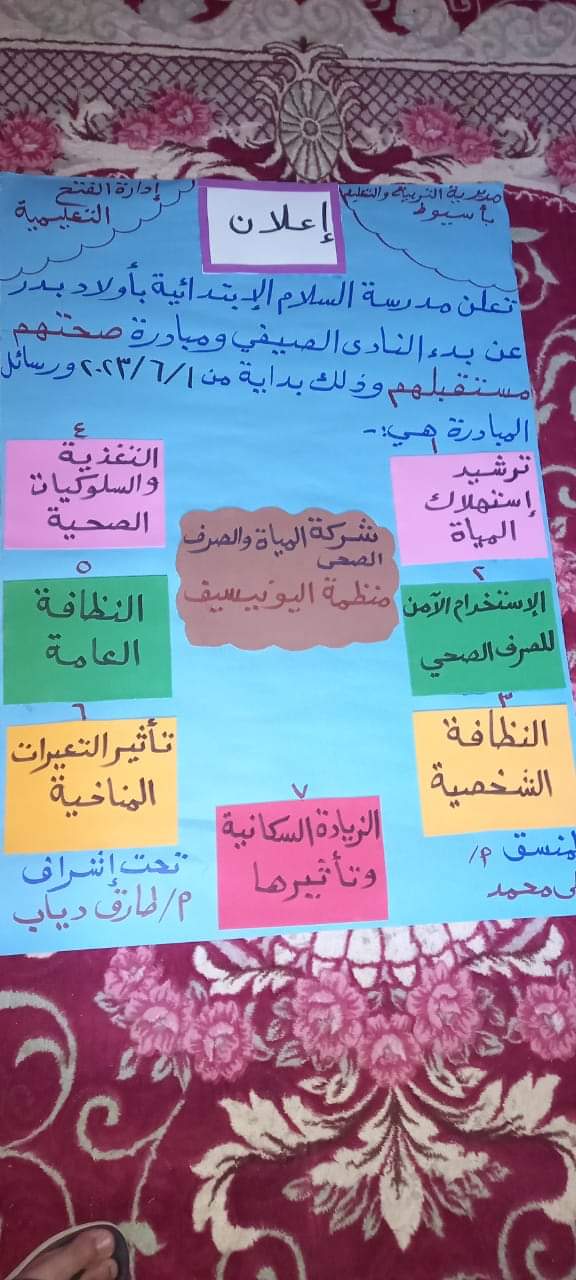 مديرية التربية والتعليم
بأسيوط
إعلان
إدارة الفتح
التعليمية
تعلن مدرسة السلام الإبتدائية بأولاد بدر
عن بدء النادى الصيفي ومبادرة صحتهم
مستقبلهم وذلك بداية من ٢٠٢٣/٦/١ ورسائل
المبادرة هي:-
١
ترشيد
إستهلاك
المياة
٢
الإستخدام الآمن
للصرف الصحي
٣
النظافة
الشخصية
٤
التغذية
والسلوكيات
الصحية
٥
النظافة
العامة
٦
تأثير التعيرات
المناخية
٧
الزيادة السكانية
وتأثيرها
شركة المياة والصرف
الصحى
منظمة اليونيسيف
م/
محمد
تحت إشراف
م/طارق دياب